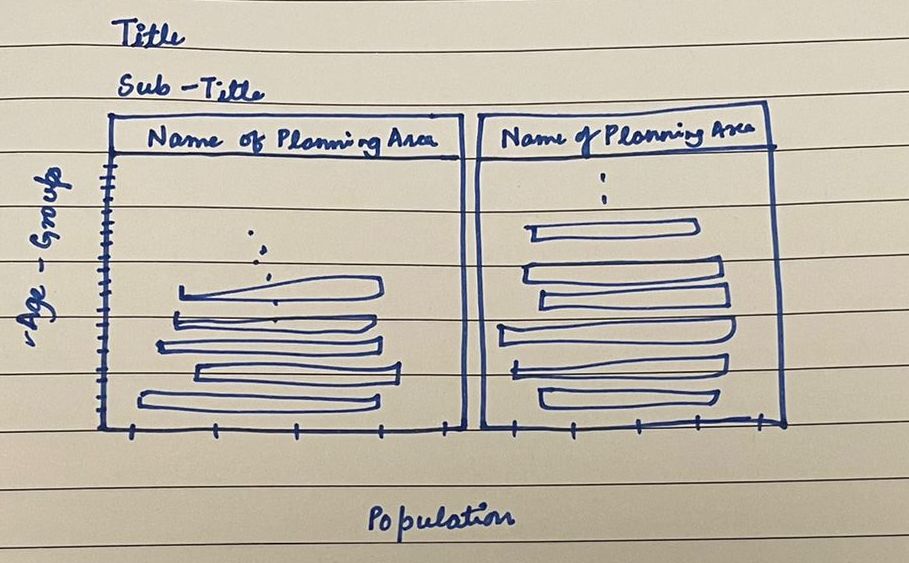 Title
Sub-Title
Name of Planning Area
Name of Planning Area
Age-Group
Population